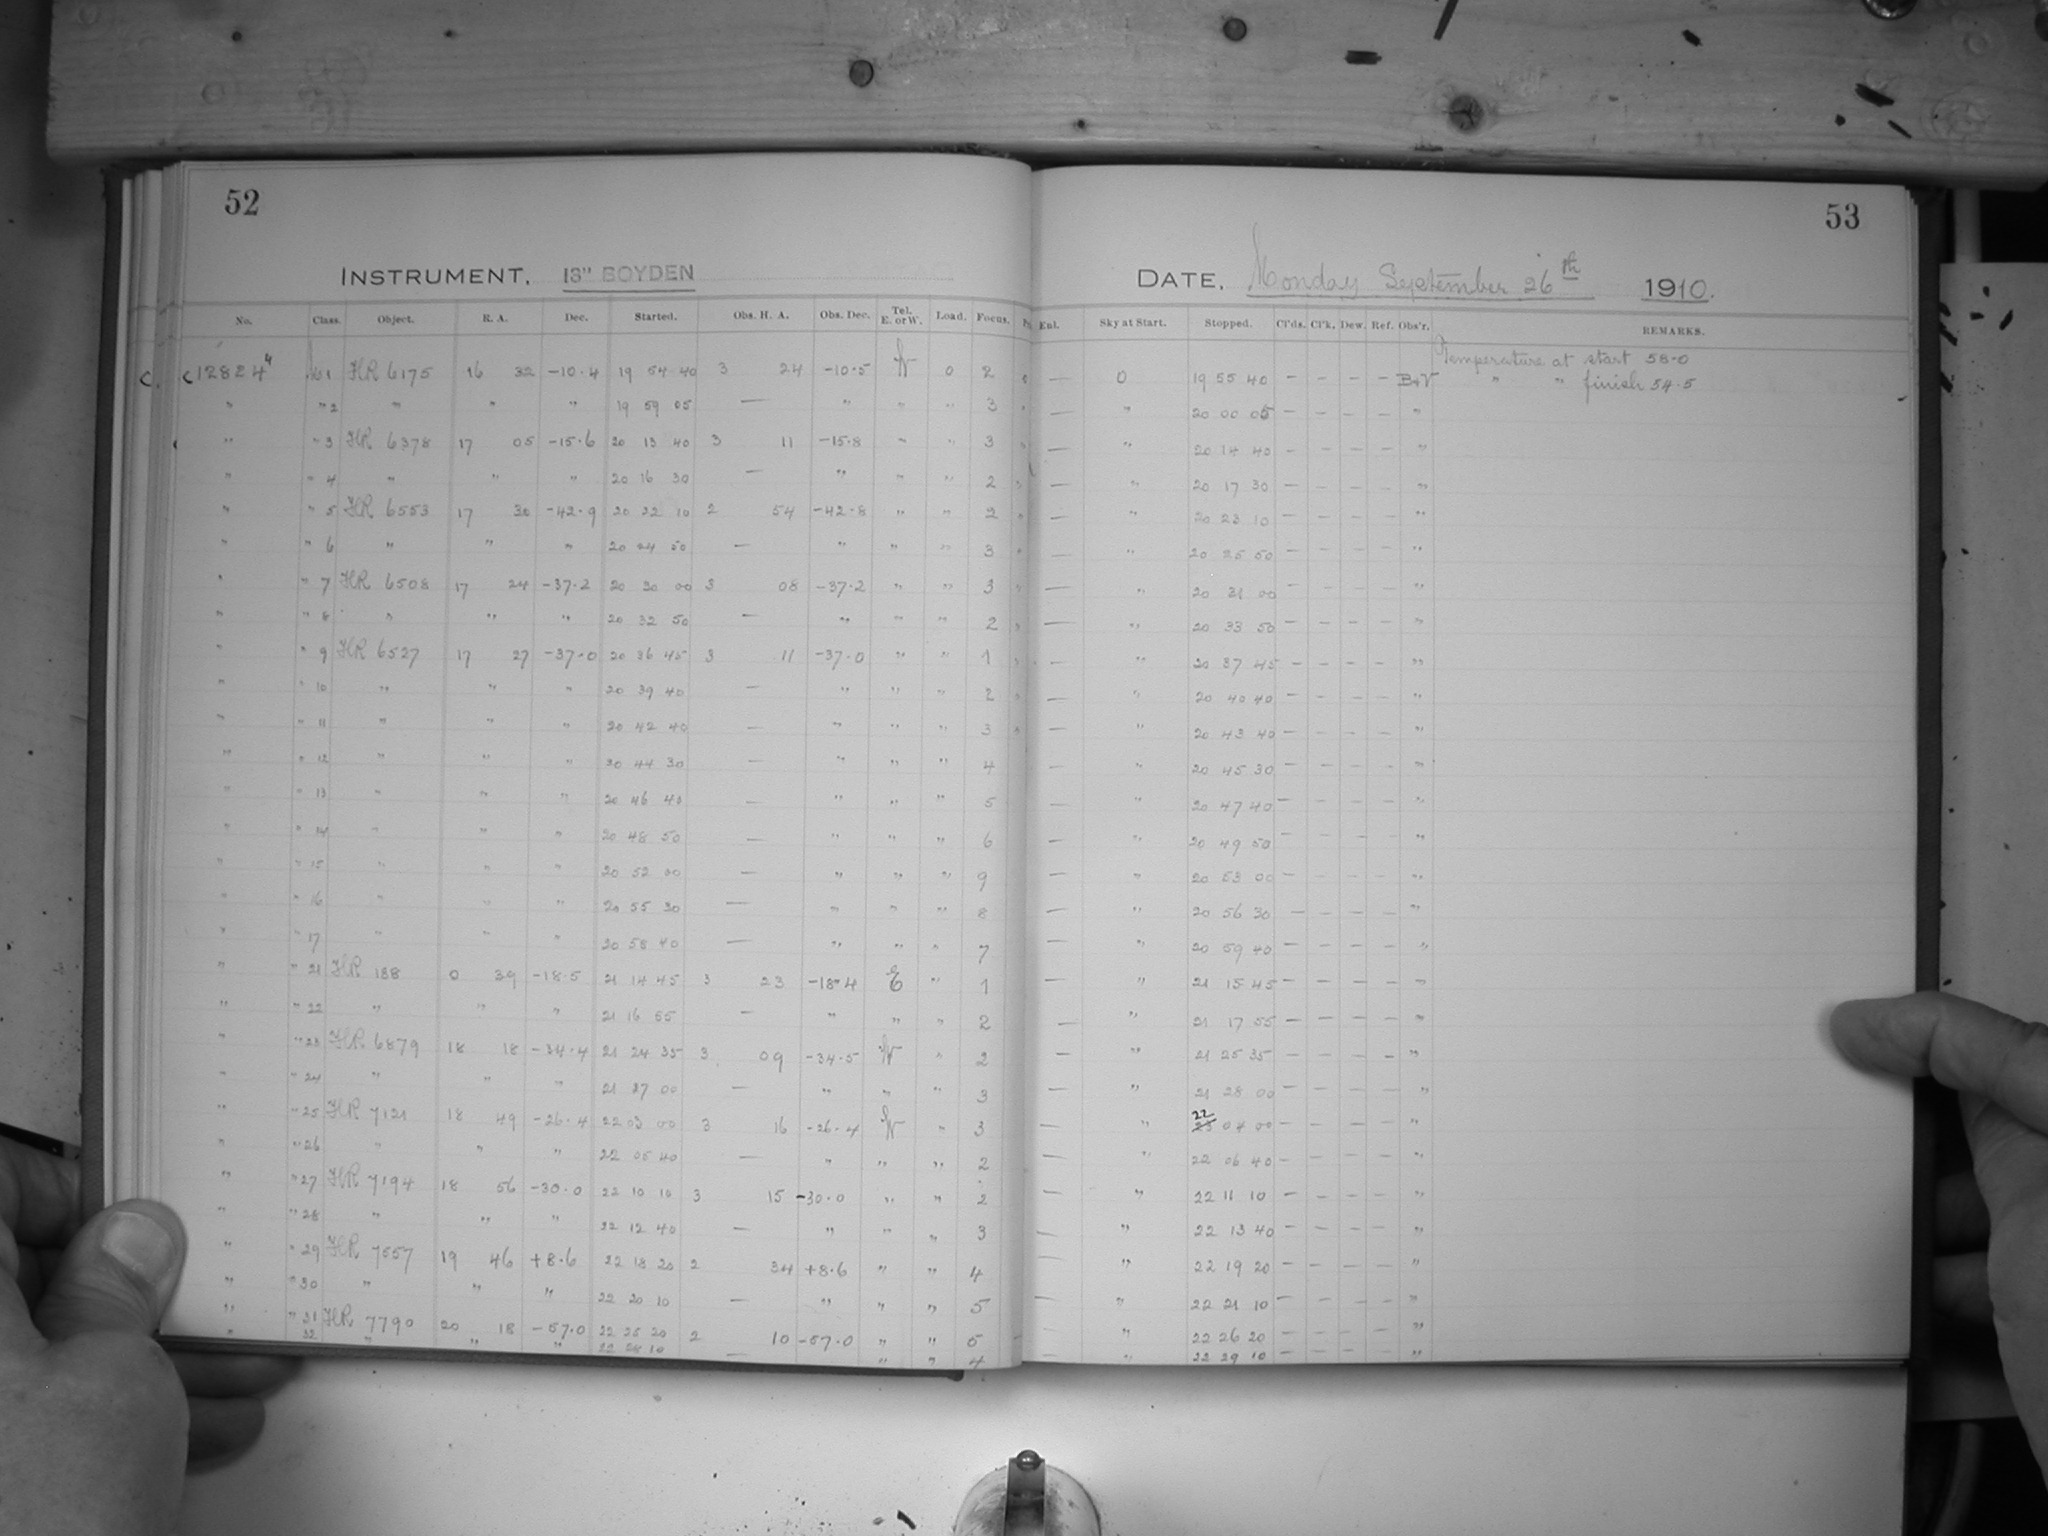 52
INSTRUMENT. 13" BOYDEN
No. Class. Object. R. A. Dec. Started. Obs. H. A. Obs. Dec. Tel. E. or W. Load. Focus.
C 12824 61 HR 6175 16 32 -10.4 19 54 40 3 24 -10.5 W 0 2
" " 2 " " " 19 59 05 — " " " 3
" " 3 HR 6378 17 05 -15.6 20 13 40 3 11 -15.8 " " 3
" " 4 " " " 20 16 30 — " " " 2
" " 5 HR 6553 17 30 -42.9 20 22 10 2 54 -42.8 " " 2
" " 6 " " " 20 24 50 — " " " 3
" " 7 HR 6508 17 24 -37.2 20 30 00 3 08 -37.2 " " 3
" " 8 " " " 20 32 50 — " " " 2
" " 9 HR 6527 17 27 -37.0 20 36 45 3 11 -37.0 " " 1
" " 10 " " " 20 39 40 — " " " 2
" " 11 " " " 20 42 40 — " " " 3
" " 12 " " " 20 44 30 — " " " 4
" " 13 " " " 20 46 40 — " " " 5
" " 14 " " " 20 48 50 — " " " 6
" " 15 " " " 20 52 00 — " " " 9
" " 16 " " " 20 55 30 — " " " 8
" " 17 " " " 20 58 40 — " " " 7
" " 21 HR 188 0 39 -18.5 21 14 45 3 23 -18.4 E " 1
" " 22 " " " 21 16 55 — " " " 2
" " 23 HR 6879 18 18 -34.4 21 24 35 3 09 -34.5 W " 2
" " 24 " " " 21 27 00 — " " " 3
" " 25 HR 7121 18 49 -26.4 22 03 00 3 16 -26.4 W " 3
" " 26 " " " 22 05 40 — " " " 2
" " 27 HR 7194 18 56 -30.0 22 10 10 3 15 -30.0 " " 2
" " 28 " " " 22 12 40 — " " " 3
" " 29 HR 7557 19 46 +8.6 22 18 20 2 34 +8.6 " " 4
" " 30 " " " 22 20 10 — " " " 5
" " 31 HR 7790 20 18 -57.0 22 25 20 2 10 -57.0 " " 5
" 32 " " " 22 28 10 — " " 4
53
DATE. Monday September 26th 1910.
Enl. Sky at Start. Stopped. Cl'ds. Cl'k. Dew. Ref. Obs'r. REMARKS.
Temperature at start 58.0
— 0 19 55 40 — — — — B+V " " finish 54.5
— " 20 00 05 — — — — "
— " 20 14 40 — — — — "
— " 20 17 30 — — — — "
— " 20 23 10 — — — — "
— " 20 25 50 — — — — "
— " 20 31 00 — — — — "
— " 20 33 50 — — — — "
— " 20 37 45 — — — — "
— " 20 40 40 — — — — "
— " 20 43 40 — — — — "
— " 20 45 30 — — — — "
— " 20 47 40 — — — — "
— " 20 49 50 — — — — "
— " 20 53 00 — — — — "
— " 20 56 30 — — — — "
— " 20 59 40 — — — — "
— " 21 15 45 — — — — "
— " 21 17 55 — — — — "
— " 21 25 35 — — — — "
— " 21 28 00 — — — — "
— " 22 04 00 — — — — "
— " 22 06 40 — — — — "
— " 22 11 10 — — — — "
— " 22 13 40 — — — — "
— " 22 19 20 — — — — "
— " 22 21 10 — — — — "
— " 22 26 20 — — — — "
— " 22 29 10 — — — — "